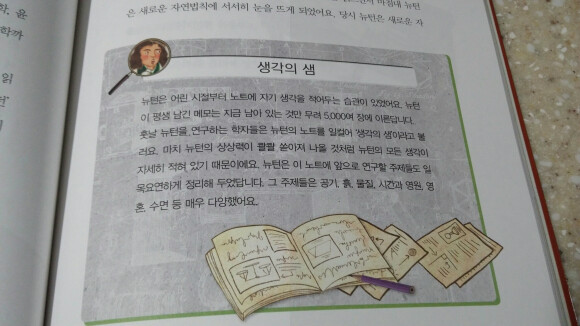 학, 윤
학까
읽
은 새로운 자연법칙에 서서히 눈을 뜨게 되었어요. 당시 뉴턴은 새로운 자
생각의 샘
뉴턴은 어린 시절부터 노트에 자기 생각을 적어두는 습관이 있었어요. 뉴턴
이 평생 남긴 메모는 지금 남아 있는 것만 무려 5,000여 장에 이른답니다.
훗날 뉴턴을 연구하는 학자들은 뉴턴의 노트를 일컬어 '생각의 샘'이라고 불
러요. 마치 뉴턴의 상상력이 콸콸 쏟아져 나올 것처럼 뉴턴의 모든 생각이
자세히 적혀 있기 때문이에요. 뉴턴은 이 노트에 앞으로 연구할 주제들도 일
목요연하게 정리해 두었답니다. 그 주제들은 공기, 흙, 물질, 시간과 영원, 영
혼, 수면 등 매우 다양했어요.